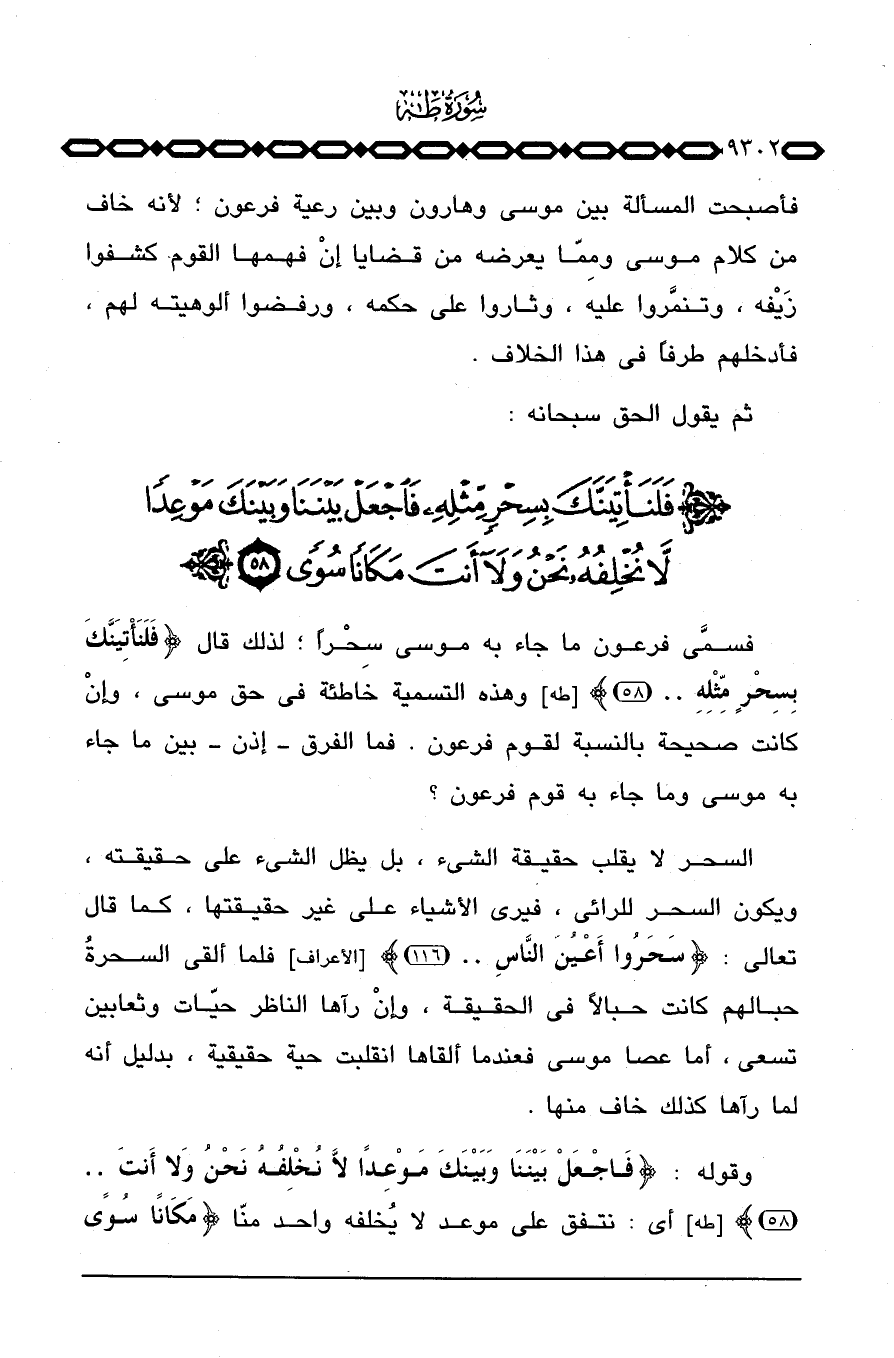 سُورَةُ طٰهٰ
٩٣٠٢
فأصبحت المسألة بين موسى وهارون وبين رعية فرعون ؛ لأنه خاف
من كلام موسى وممّا يعرضه من قضايا إنْ فهمها القوم كشفوا
زَيْفه ، وتنمَّروا عليه ، وثاروا على حكمه ، ورفضوا ألوهيته لهم ،
فأدخلهم طرفاً فى هذا الخلاف .
ثم يقول الحق سبحانه :
﴿ فَلَنَأْتِيَنَّكَ بِسِحْرٍ مِّثْلِهِۦ فَٱجْعَلْ بَيْنَنَا وَبَيْنَكَ مَوْعِدًا
لَّا نُخْلِفُهُۥ نَحْنُ وَلَآ أَنتَ مَكَانًا سُوًى ٥٨ ﴾
فسمَّى فرعون ما جاء به موسى سحْراً ؛ لذلك قال ﴿ فَلَنَأْتِيَنَّكَ
بِسِحْرٍ مِّثْلِهِ .. (٥٨) ﴾ [طه] وهذه التسمية خاطئة فى حق موسى ، وإنْ
كانت صحيحة بالنسبة لقوم فرعون . فما الفرق - إذن - بين ما جاء
به موسى وما جاء به قوم فرعون ؟
السحر لا يقلب حقيقة الشىء ، بل يظل الشىء على حقيقته ،
ويكون السحر للرائى ، فيرى الأشياء على غير حقيقتها ، كما قال
تعالى : ﴿ سَحَرُوا أَعْيُنَ النَّاسِ .. (١١٦) ﴾ [الأعراف] فلما ألقى السحرةُ
حبالهم كانت حبالاً فى الحقيقة ، وإنْ رآها الناظر حيّات وثعابين
تسعى ، أما عصا موسى فعندما ألقاها انقلبت حية حقيقية ، بدليل أنه
لما رآها كذلك خاف منها .
وقوله : ﴿ فَاجْعَلْ بَيْنَنَا وَبَيْنَكَ مَوْعِدًا لاَّ نُخْلِفُهُ نَحْنُ وَلا أَنتَ ..
(٥٨) ﴾ [طه] أى : نتفق على موعد لا يُخلفه واحد منّا ﴿ مَكَانًا سُوًى